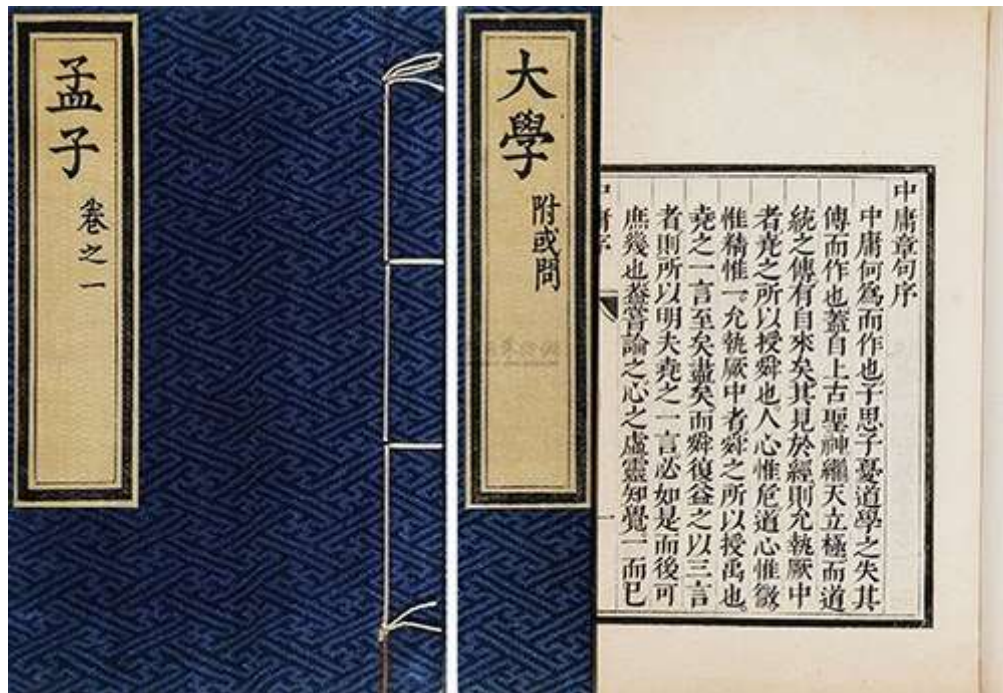 孟子
卷之一
大學
附或問
中庸章句序
中庸何為而作也子思子憂道學之失其
傳而作也蓋自上古聖神繼天立極而道
統之傳有自來矣其見於經則允執厥中
者堯之所以授舜也人心惟危道心惟微
惟精惟一允執厥中者舜之所以授禹也
堯之一言至矣盡矣而舜復益之以三言
者則所以明夫堯之一言必如是而後可
庶幾也蓋嘗論之心之虛靈知覺一而已